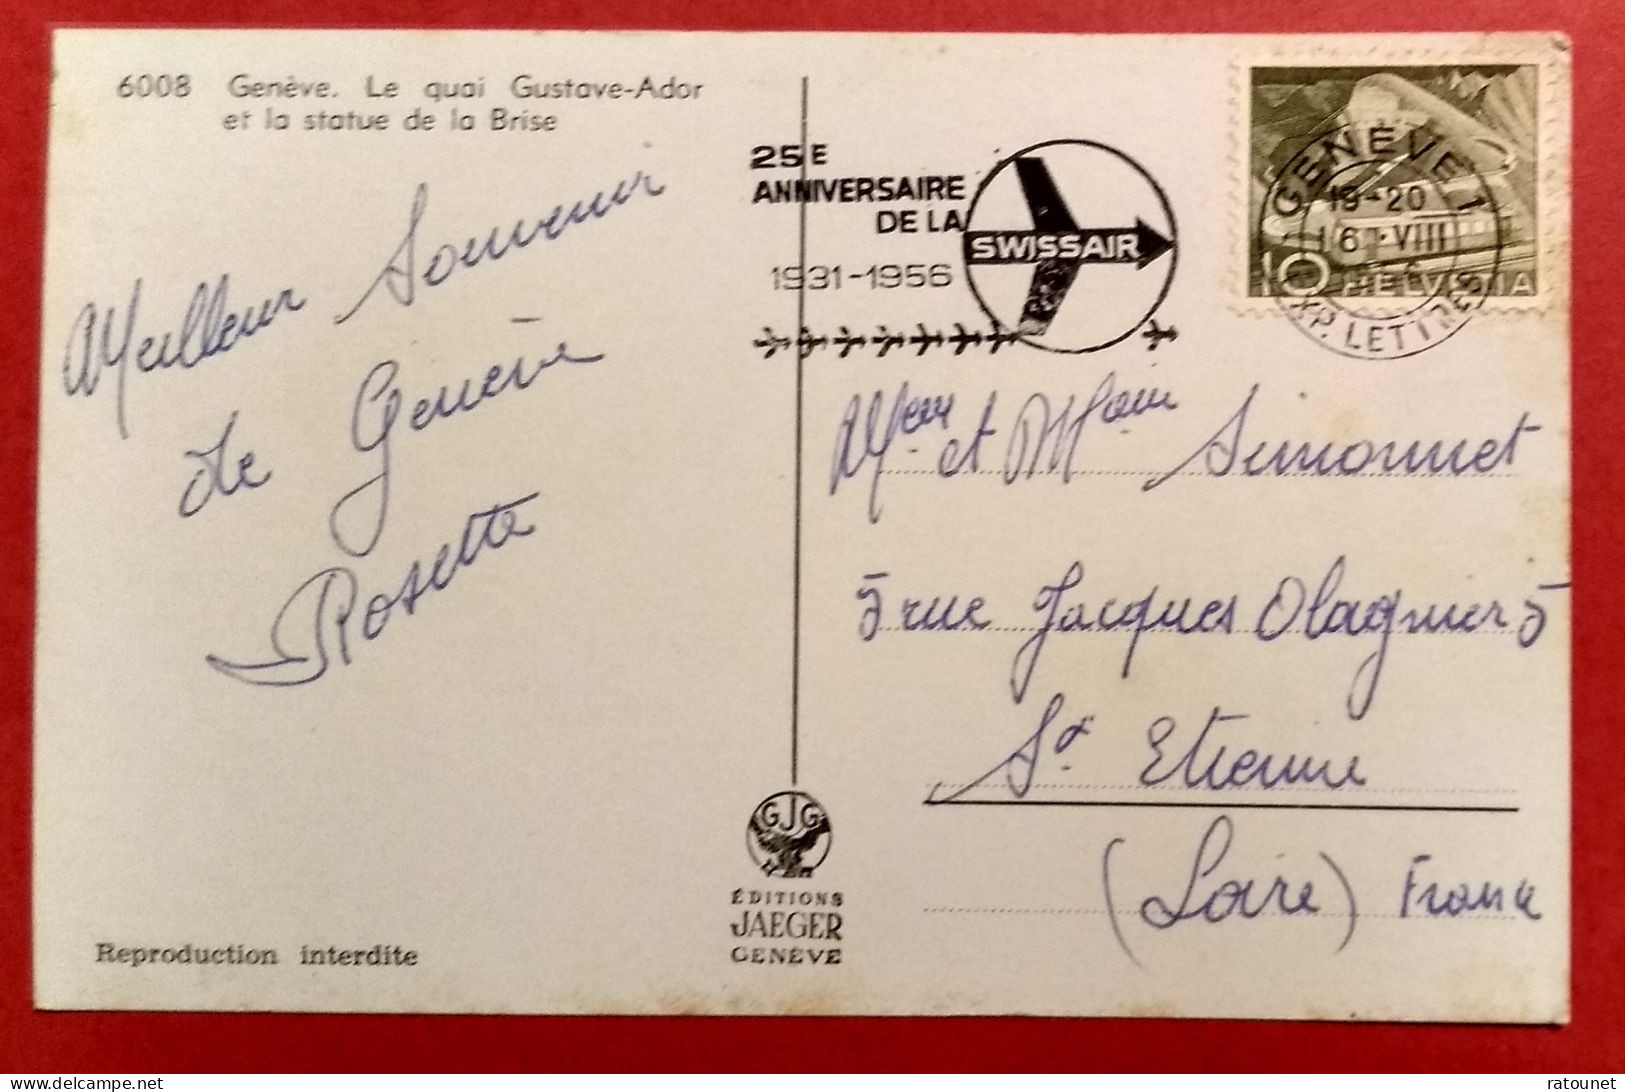 6008 Genève. Le quai Gustave-Ador
et la statue de la Brise
Meilleur Souvenir
de Genève
Rosette
Reproduction interdite
25E
ANNIVERSAIRE
DE LA
SWISSAIR
1931-1956
GENÈVE 1
19-20
VIII
EXP. LETTRES
10 HELVETIA
et Simonnet
5 rue Jacques Olagnier 5
St Etienne
(Loire) France
GJG
ÉDITIONS
JAEGER
GENÈVE